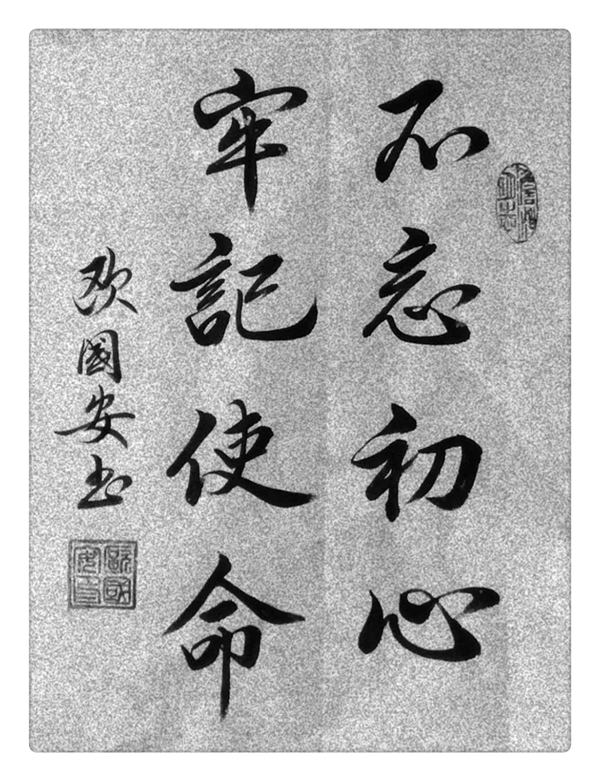 不忘初心
牢記使命
欧國安书